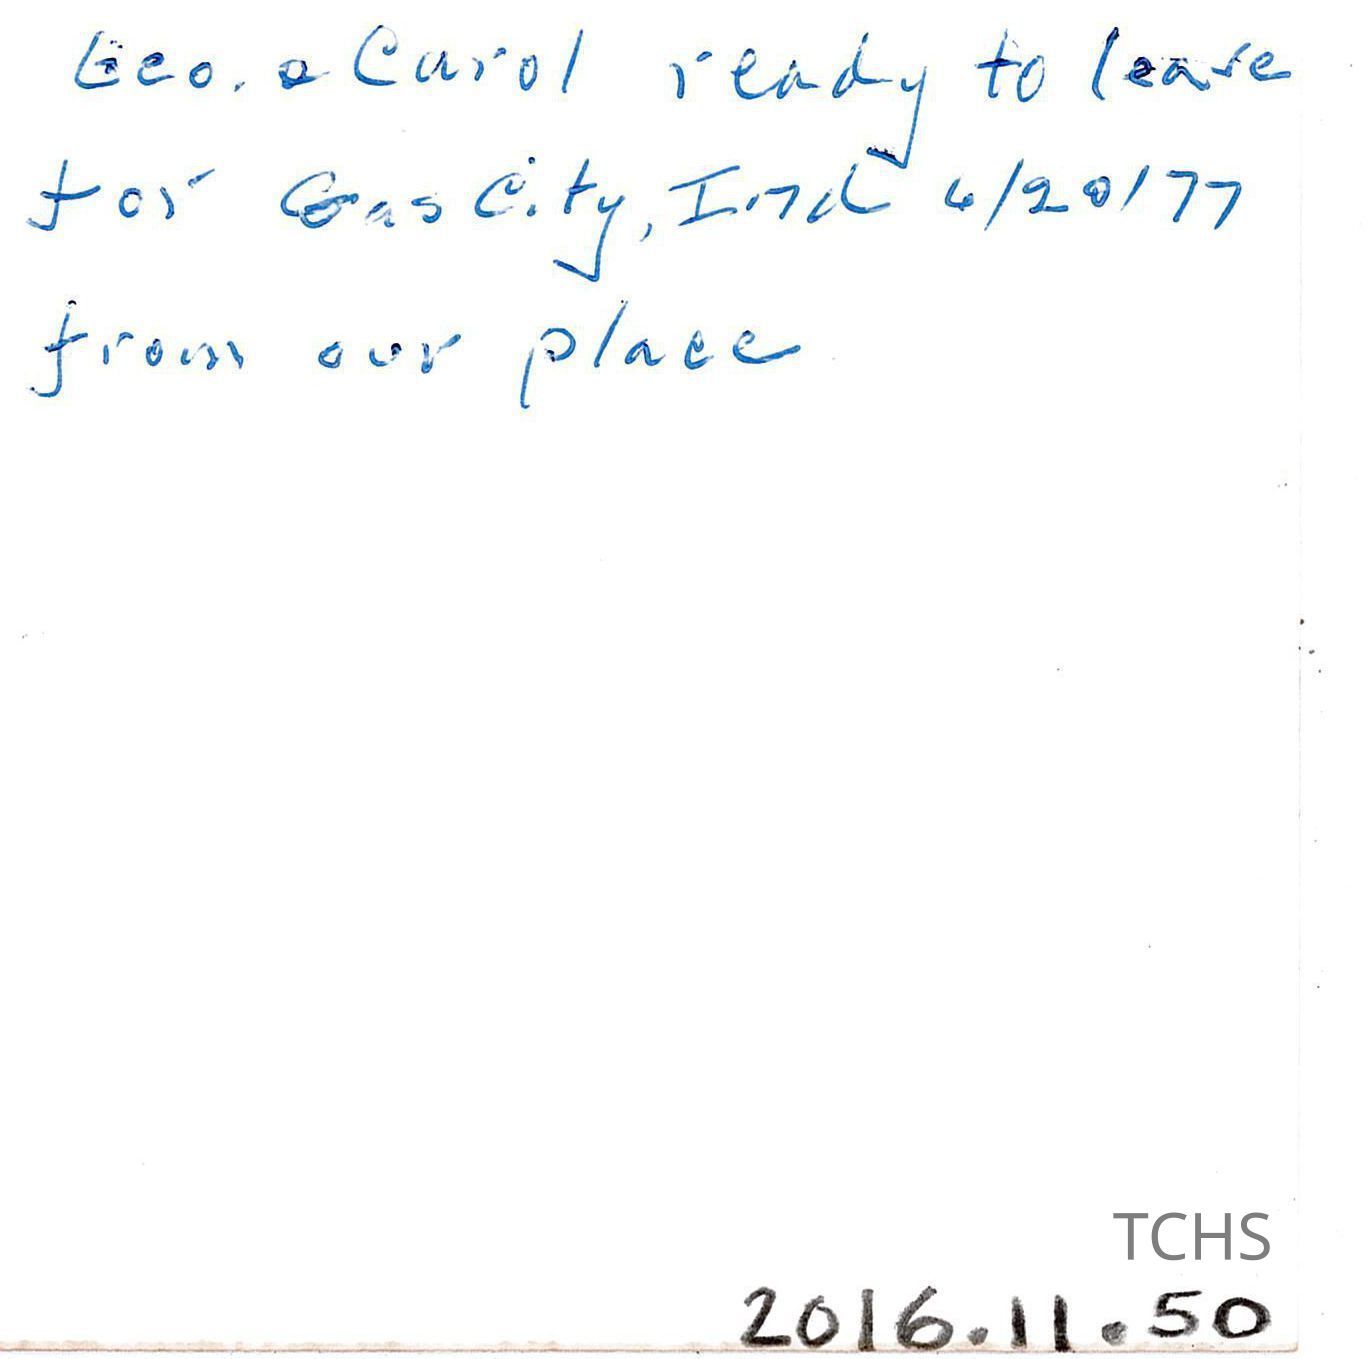 Geo. & Carol ready to leave
for Gas City, Ind 6/20/77
from our place
TCHS
2016.11.50